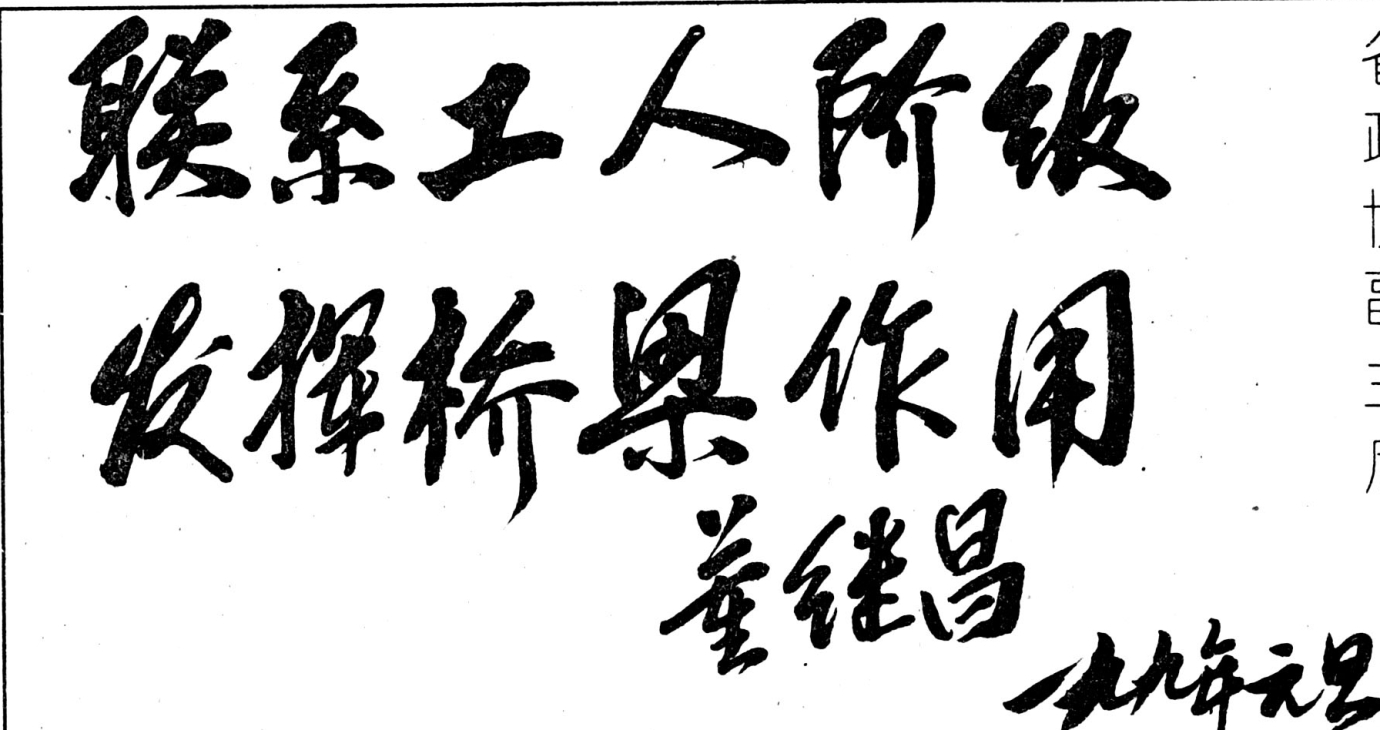 联系工人阶级
发挥桥梁作用
董继昌
元旦
省政协副主席